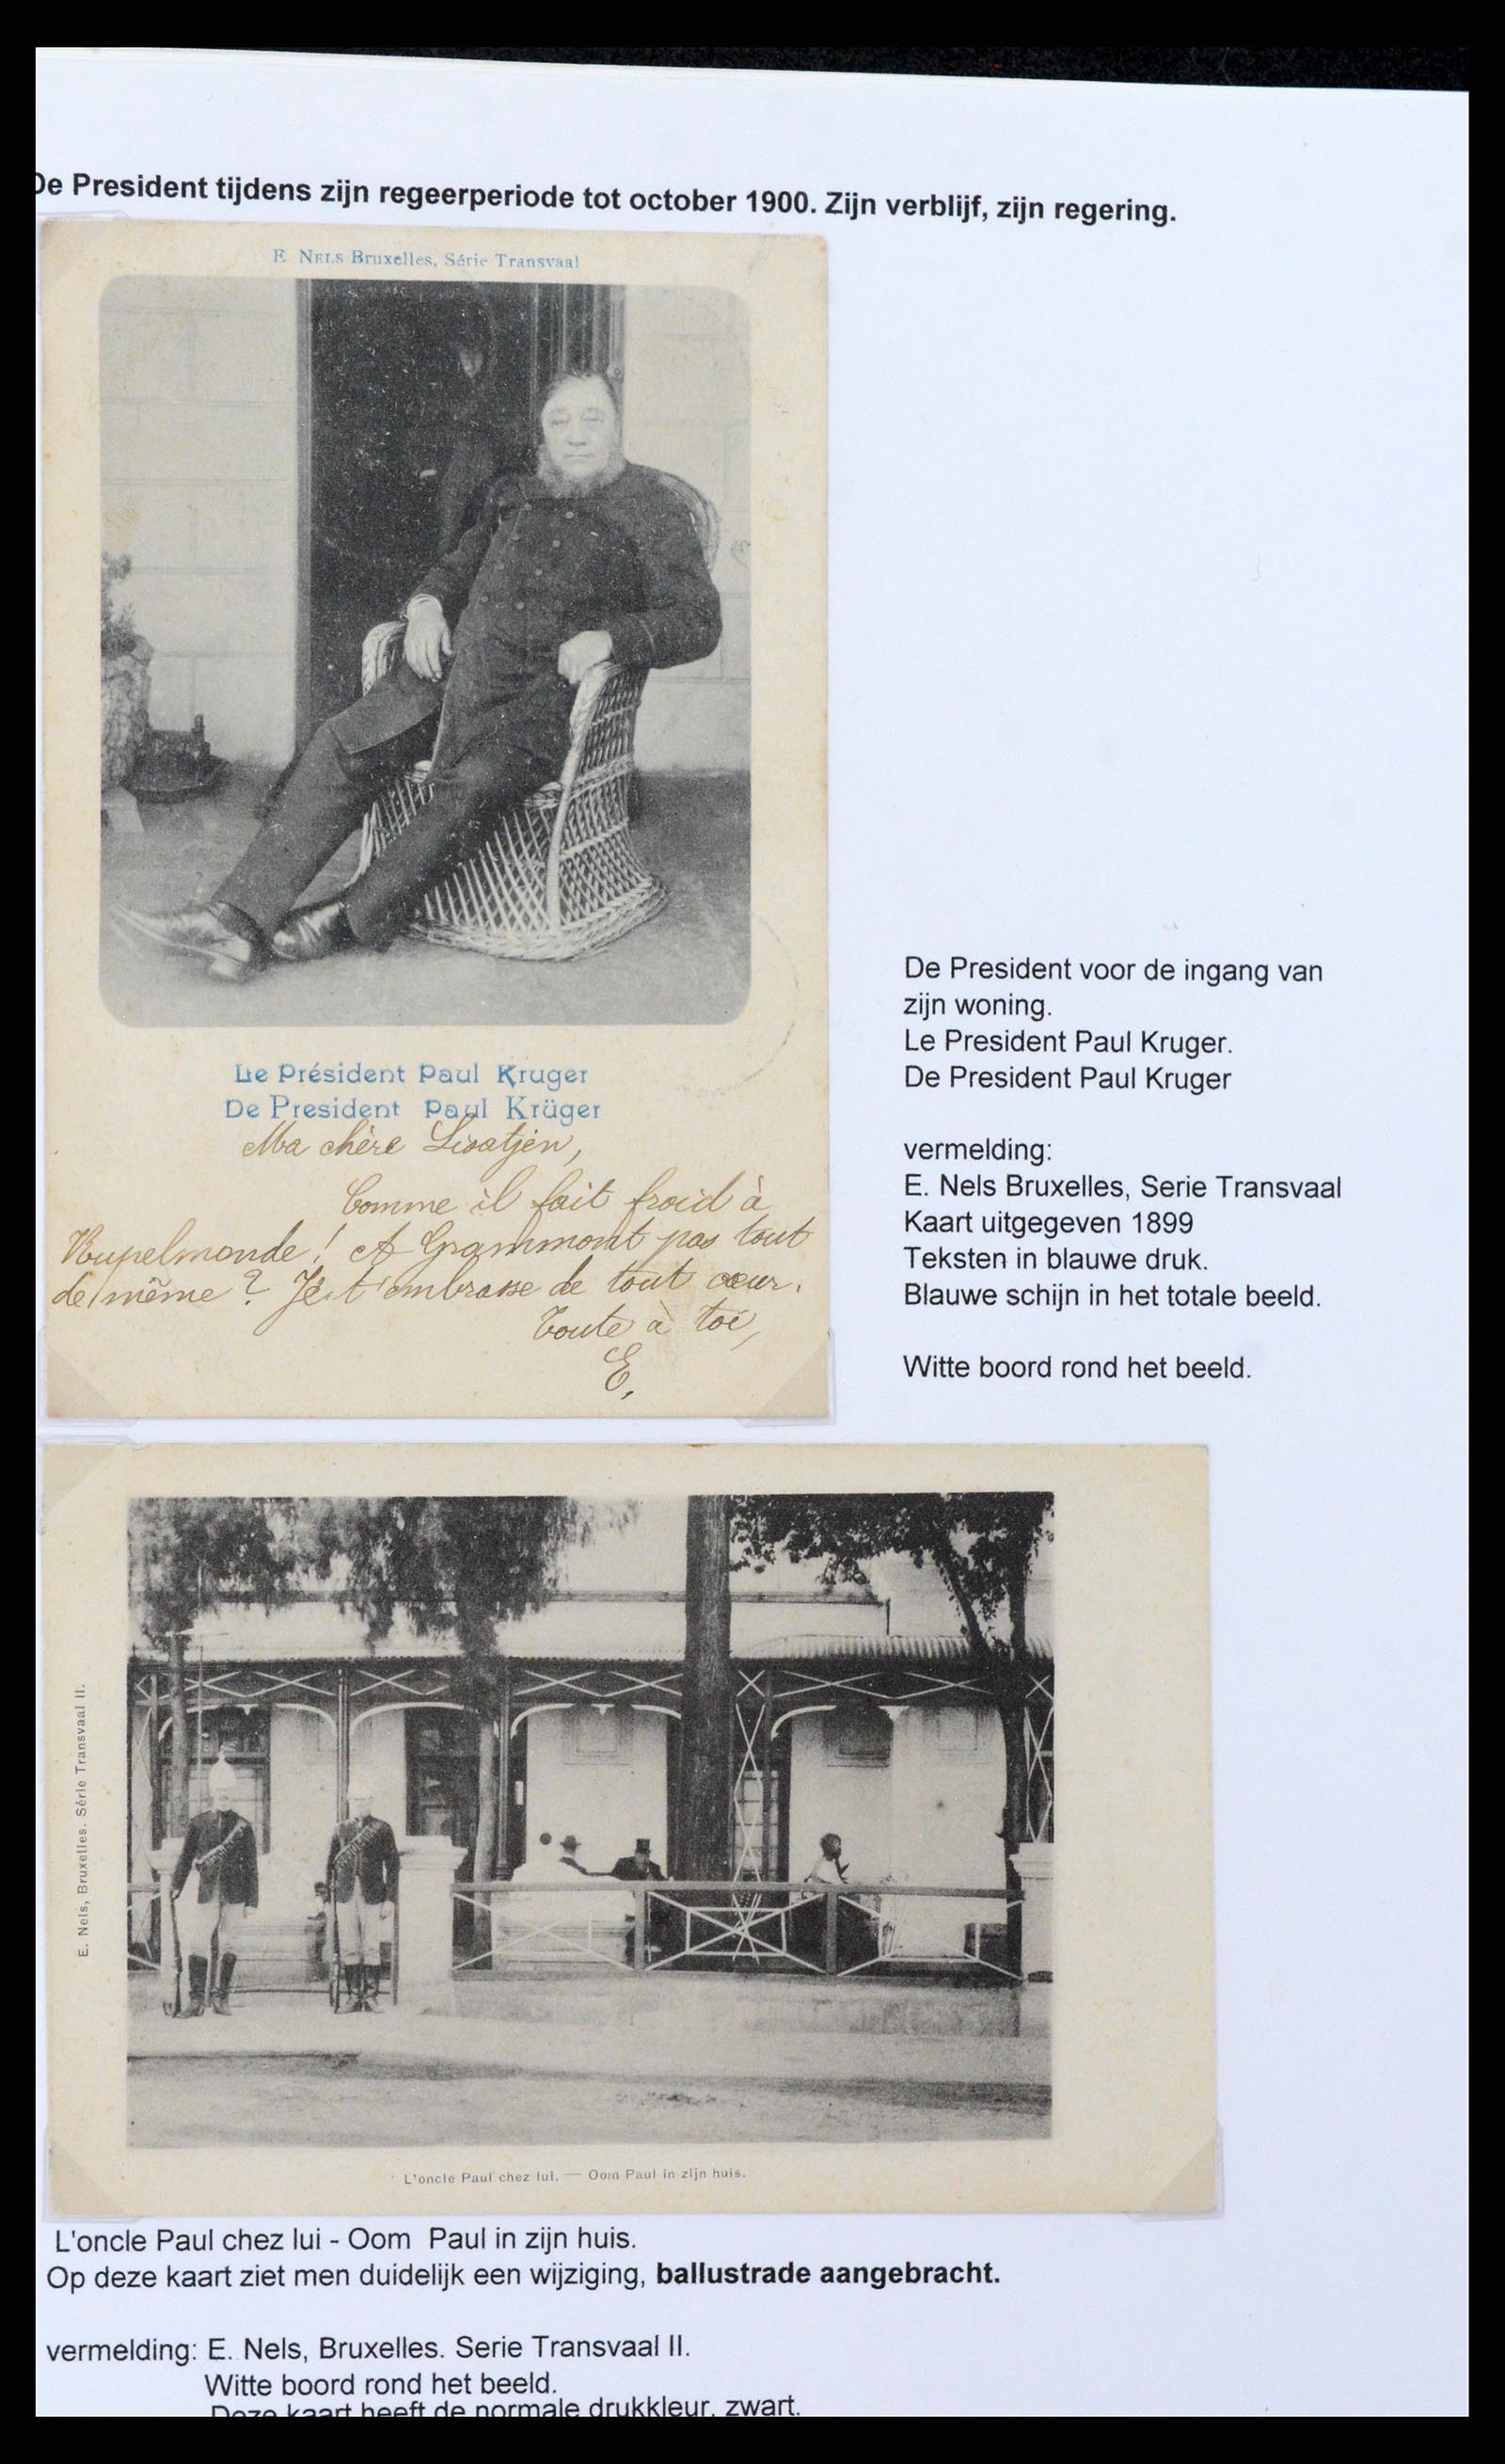 De President tijdens zijn regeerperiode tot october 1900. Zijn verblijf, zijn regering.
E. NELS Bruxelles, Série Transvaal
Le Président Paul Kruger
De President Paul Krüger
Ma chère Lisatjen,
Comme il fait froid à
Rupelmonde! A Grammont pas tout
de même? Je t'embrasse de tout cœur.
Toute à toi,
E.
De President voor de ingang van
zijn woning.
Le President Paul Kruger.
De President Paul Kruger
vermelding:
E. Nels Bruxelles, Serie Transvaal
Kaart uitgegeven 1899
Teksten in blauwe druk.
Blauwe schijn in het totale beeld.
Witte boord rond het beeld.
E. Nels, Bruxelles. Série Transvaal II.
L'oncle Paul chez lui. — Oom Paul in zijn huis.
L'oncle Paul chez lui - Oom Paul in zijn huis.
Op deze kaart ziet men duidelijk een wijziging, ballustrade aangebracht.
vermelding: E. Nels, Bruxelles. Serie Transvaal II.
Witte boord rond het beeld.
Deze kaart heeft de normale drukkleur, zwart.